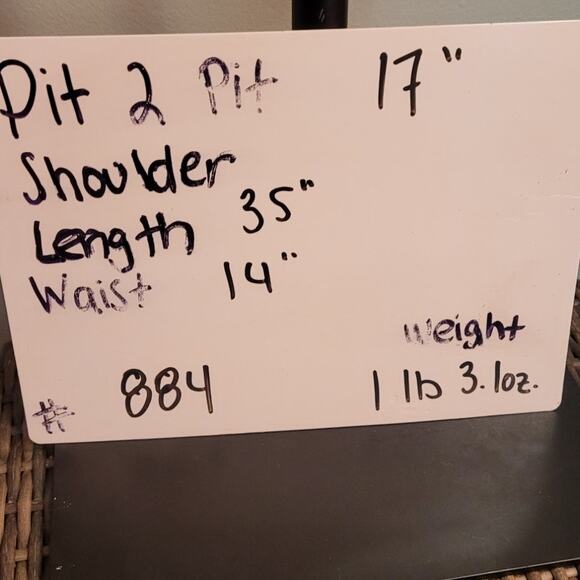 Pit 2 Pit 17"
Shoulder
Length 35"
Waist 14"
weight
# 884 1 lb 3.1oz.